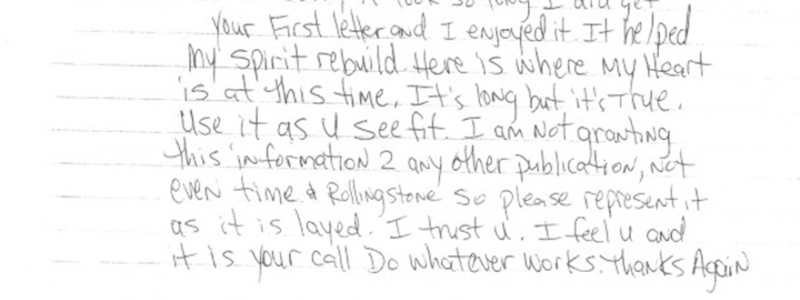 took so long I did get
your First letter and I enjoyed it. It helped
My spirit rebuild. Here is where My Heart
is at this time. It's long but it's True.
Use it as U see fit. I am Not granting
this information 2 any other publication, Not
even time & Rollingstone So please represent it
as it is layed. I trust u. I feel u and
it is your call Do whatever works. Thanks Again